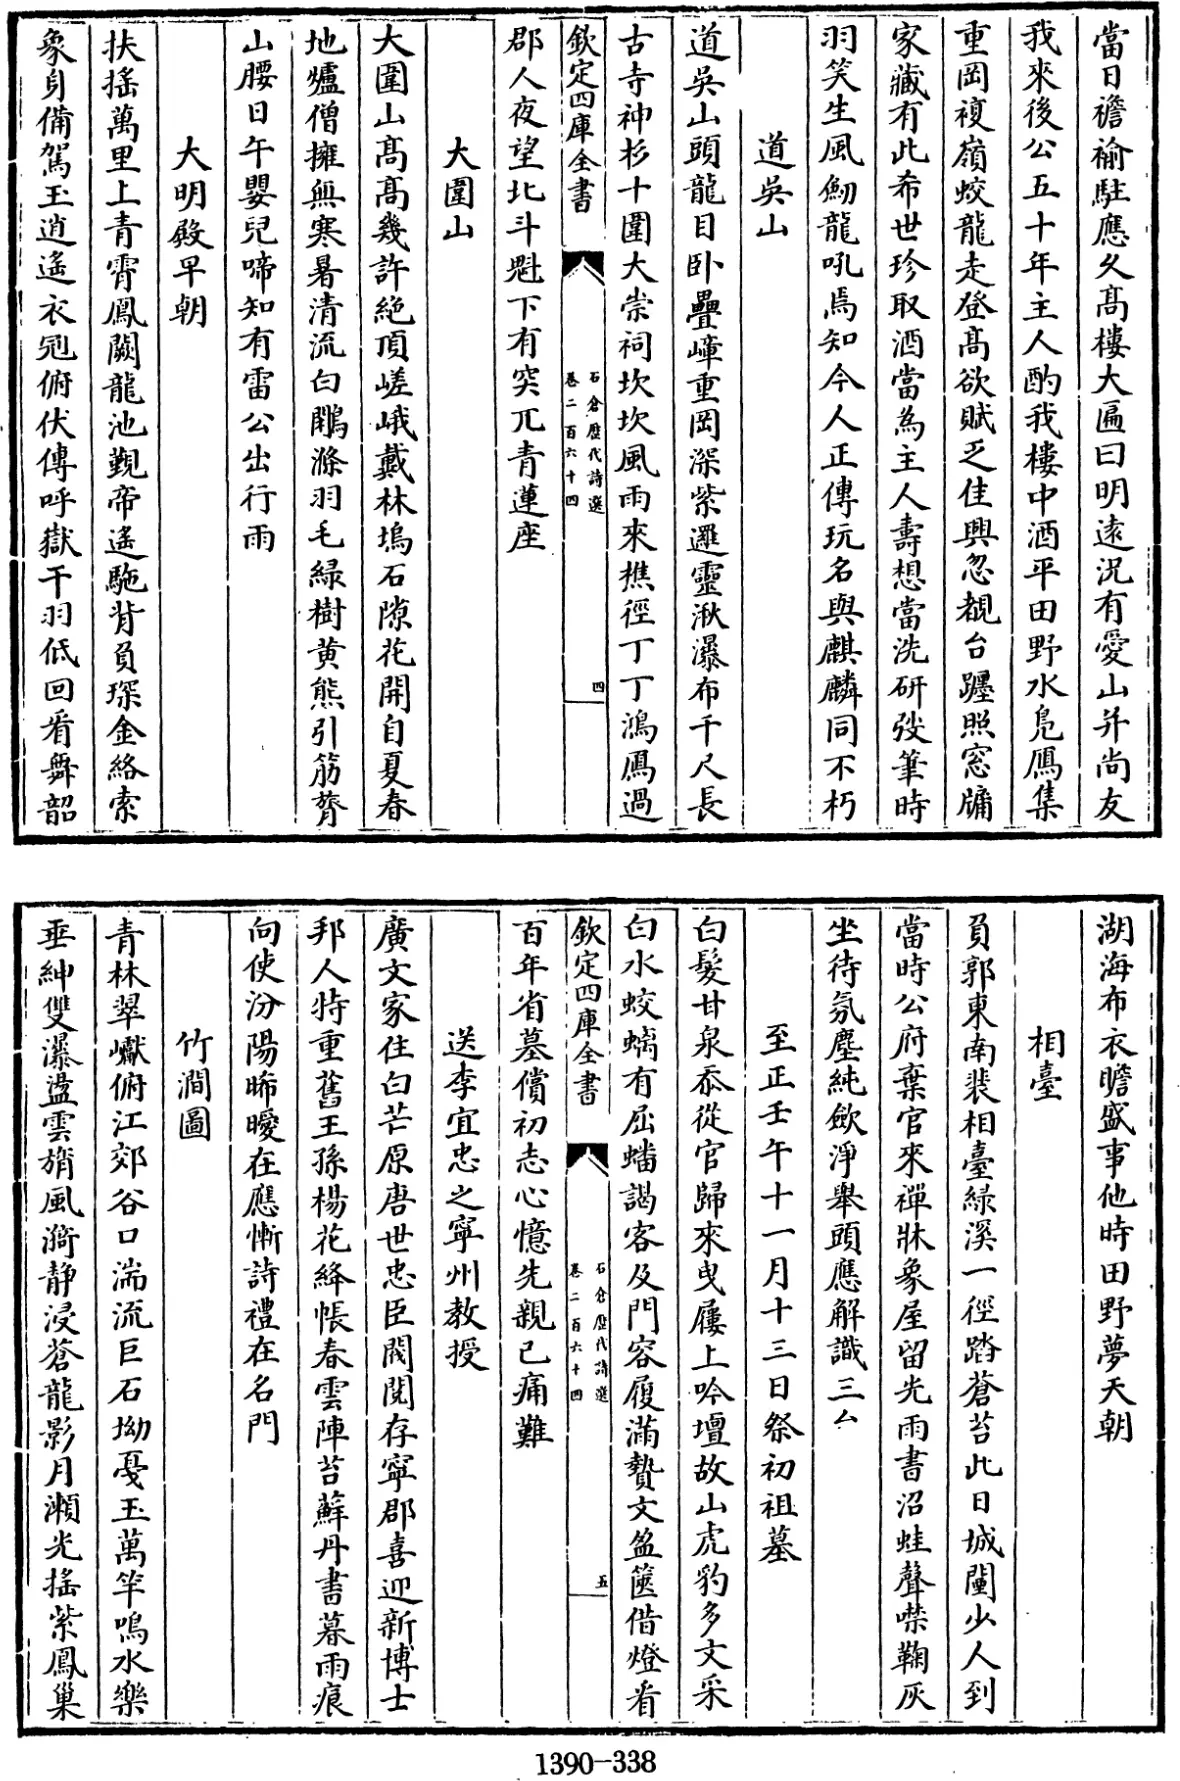 當日襜褕駐應久高樓大匾曰明遠況有愛山并尚友
我來後公五十年主人酌我樓中酒平田野水鳧鴈集
重岡複嶺蛟龍走登高欲賦乏佳興忽覩台躔照窓牖
家藏有此希世珍取酒當為主人壽想當洗研弢筆時
羽笑生風劒龍吼焉知今人正傳玩名與麒麟同不朽
道吳山
道吳山頭龍目卧疊嶂重岡深紫邏靈湫瀑布千尺長
古寺神杉十圍大崇祠坎坎風雨來樵徑丁丁鴻鴈過
欽定四庫全書
石倉歷代詩選
卷二百六十四
四
郡人夜望北斗魁下有突兀青蓮座
大圍山
大圍山高高幾許絶頂嵯峨戴林塢石隙花開自夏春
地爐僧擁無寒暑清流白鷴滌羽毛緑樹黄熊引筋膂
山腰日午嬰兒啼知有雷公出行雨
大明殿早朝
扶摇萬里上青霄鳳闕龍池覲帝遥駞背負琛金絡索
象身備駕玉逍遙衣冠俯伏傳呼嶽干羽低回看舞韶
湖海布衣瞻盛事他時田野夢天朝
相臺
負郭東南裴相臺緑溪一徑踏蒼苔此日城闉少人到
當時公府棄官來禪牀象屋留光雨書沼蛙聲噤鞠灰
坐待氛塵純歛淨舉頭應解識三台
至正壬午十一月十三日祭初祖墓
白髮甘泉忝從官歸來曳屨上吟壇故山虎豹多文采
白水蛟螭有屈蟠謁客及門容履滿贄文盈篋借燈看
欽定四庫全書
石倉歷代詩選
卷二百六十四
五
百年省墓償初志心憶先親已痛難
送李宜忠之寧州教授
廣文家住白芒原唐世忠臣閥閱存寧郡喜迎新博士
邦人特重舊王孫楊花絳帳春雲陣苔蘚丹書暮雨痕
向使汾陽晞曖在應慚詩禮在名門
竹澗圖
青林翠巘俯江郊谷口湍流巨石坳戞玉萬竿鳴水樂
垂紳雙瀑盪雲旓風漪静浸蒼龍影月瀬光摇紫鳳巢
1390-338